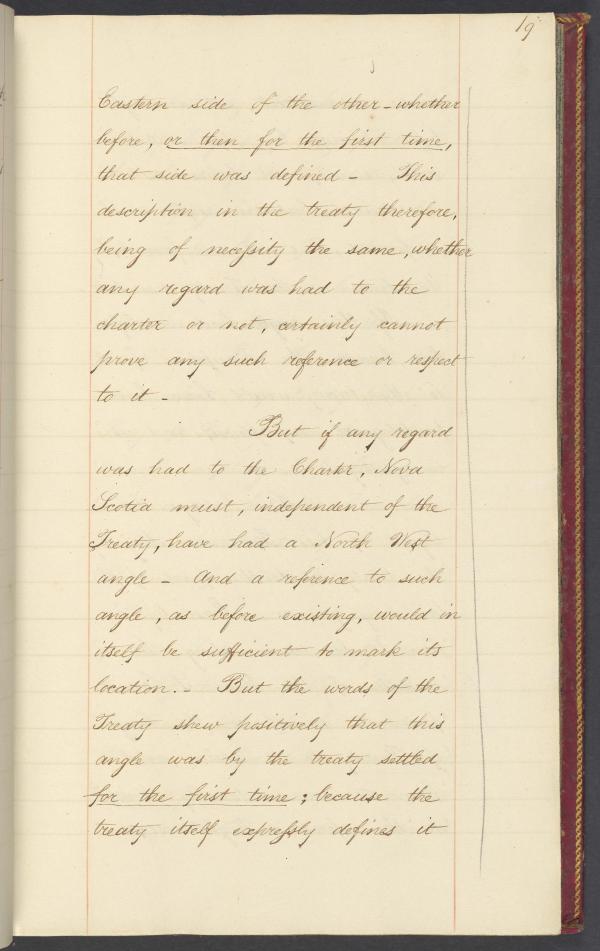 19
Eastern side of the other - whether
before, or then for the first time,
that side was defined - This
description in the treaty therefore,
being of neceſsity the same, whether
any regard was had to the
charter or not, certainly cannot
prove any such reference or respect
to it -
But if any regard
was had to the Charter, Nova
Scotia must, independent of the
Treaty, have had a North West
angle - And a reference to such
angle, as before existing, would in
itself be sufficient to mark its
location. - But the words of the
Treaty shew positively that this
angle was by the treaty settled
for the first time; because the
treaty itself expreſsly defines it